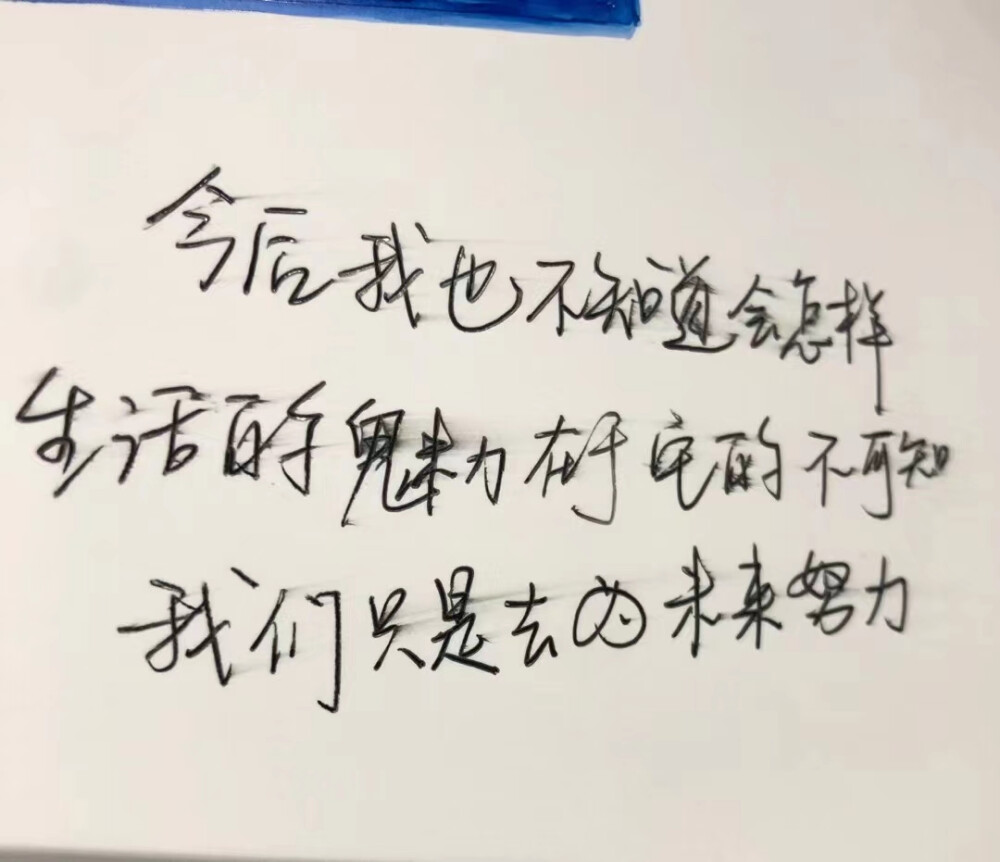 今后我也不知道会怎样
生活的魅力在于它的不可知
我们只是去为未来努力